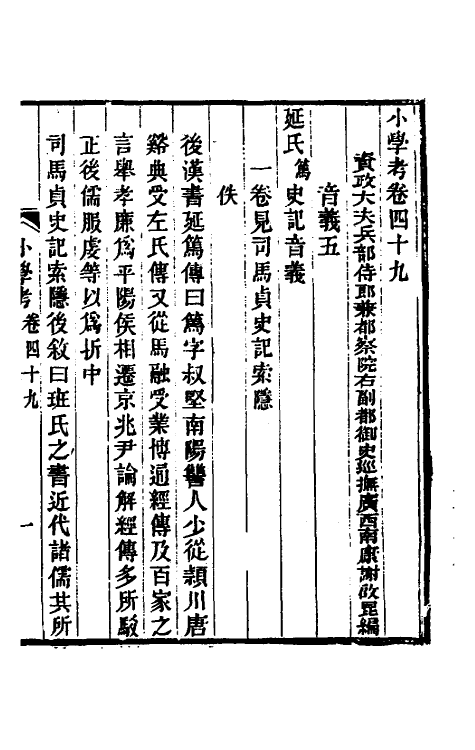 小學考卷四十九
資政大夫兵部侍郎兼都察院右副都御史巡撫廣西南康謝啟昆編
音義五
延氏篤史記音義
一卷見司馬貞史記索隱
佚
後漢書延篤傳曰篤字叔堅南陽犨人少從潁川唐
谿典受左氏傳又從馬融受業博通經傳及百家之
言舉孝廉爲平陽侯相遷京兆尹論解經傳多所駁
正後儒服虔等以爲折中
司馬貞史記索隱後敘曰班氏之書近代諸儒其所
小學考卷四十九 一